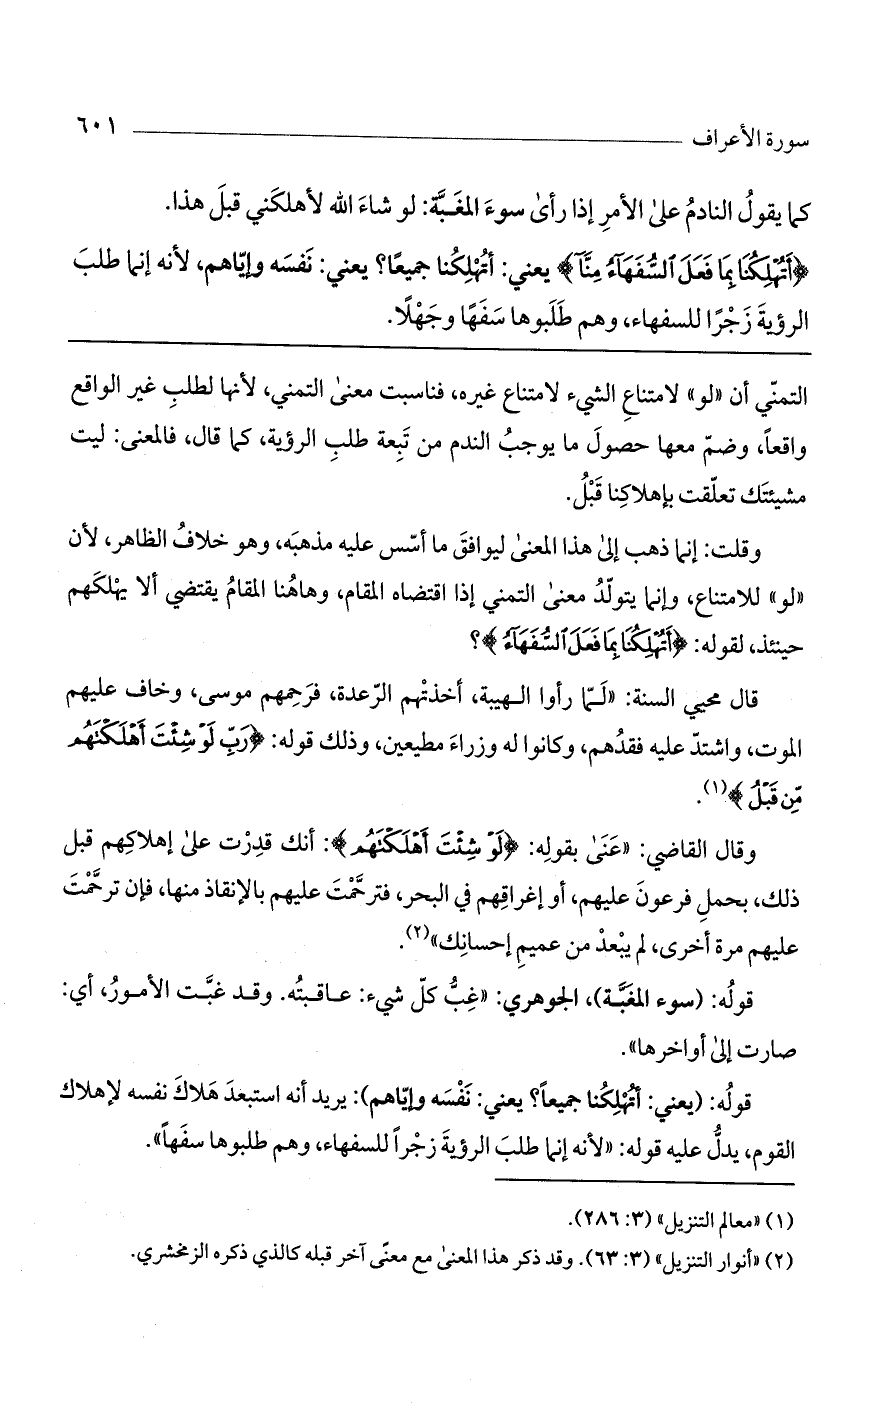 سورة الأعراف ٦٠١
كما يقولُ النادمُ علىٰ الأمرِ إذا رأىٰ سوءَ المغَبَّة: لو شاءَ الله لأهلكَني قبلَ هذا.
﴿أَتُهْلِكُنَا بِمَا فَعَلَ ٱلسُّفَهَآءُ مِنَّآ﴾ يعني: أتُهْلِكُنا جميعًا؟ يعني: نَفسَه وإيّاهم، لأنه إنما طلبَ
الرؤيةَ زَجْرًا للسفهاء، وهم طَلَبوها سَفَهًا وجَهْلًا.
التمنّي أن «لو» لامتناعِ الشيء لامتناع غيره، فناسبت معنىٰ التمني، لأنها لطلبِ غير الواقع
واقعاً، وضمّ معها حصولَ ما يوجبُ الندم من تَبِعة طلبِ الرؤية، كما قال، فالمعنىٰ: ليت
مشيئتَك تعلّقت بإهلاكِنا قَبْلُ.
وقلت: إنما ذهب إلىٰ هذا المعنىٰ ليوافقَ ما أسّس عليه مذهبَه، وهو خلافُ الظاهر، لأن
«لو» للامتناع، وإنما يتولّدُ معنىٰ التمني إذا اقتضاه المقام، وهاهُنا المقامُ يقتضي ألا يهْلكَهم
حينئذ، لقوله: ﴿أَتُهْلِكُنَا بِمَا فَعَلَ ٱلسُّفَهَآءُ﴾؟
قال محيي السنة: «لَـمّا رأوا الـهيبة، أخذتْهم الرّعدة، فرَحِمهم موسى، وخاف عليهم
الموت، واشتدّ عليه فقدُهم، وكانوا له وزراءَ مطيعين، وذلك قوله: ﴿رَبِّ لَوْ شِئْتَ أَهْلَكْتَهُم
مِّن قَبْلُ﴾(١).
وقال القاضي: «عَنَىٰ بقولِه: ﴿لَوْ شِئْتَ أَهْلَكْتَهُم﴾: أنك قدِرْت علىٰ إهلاكِهم قبل
ذلك، بحملِ فرعونَ عليهم، أو إغراقِهم في البحر، فترحَّمْتَ عليهم بالإنقاذ منها، فإن ترحَّمْتَ
عليهم مرة أخرى، لم يبْعدْ من عميمِ إحسانِك»(٢).
قولُه: (سوء المغَبَّـة)، الجوهري: «غِبُّ كلّ شيء: عـاقـبتُه. وقـد غبَّـت الأمـورُ، أي:
صارت إلىٰ أواخرها».
قولُه: (يعني: أتُهْلِكُنا جميعاً؟ يعني: نَفْسَه وإيّاهم): يريد أنه استبعدَ هَلاكَ نفسه لإهلاك
القوم، يدلُّ عليه قوله: «لأنه إنما طلبَ الرؤيةَ زجْراً للسفهاء، وهم طلبوها سفَهاً».
(١) «معالم التنزيل» (٣: ٢٨٦).
(٢) «أنوار التنزيل» (٣: ٦٣). وقد ذكر هذا المعنىٰ مع معنّى آخر قبله كالذي ذكره الزمخشري.